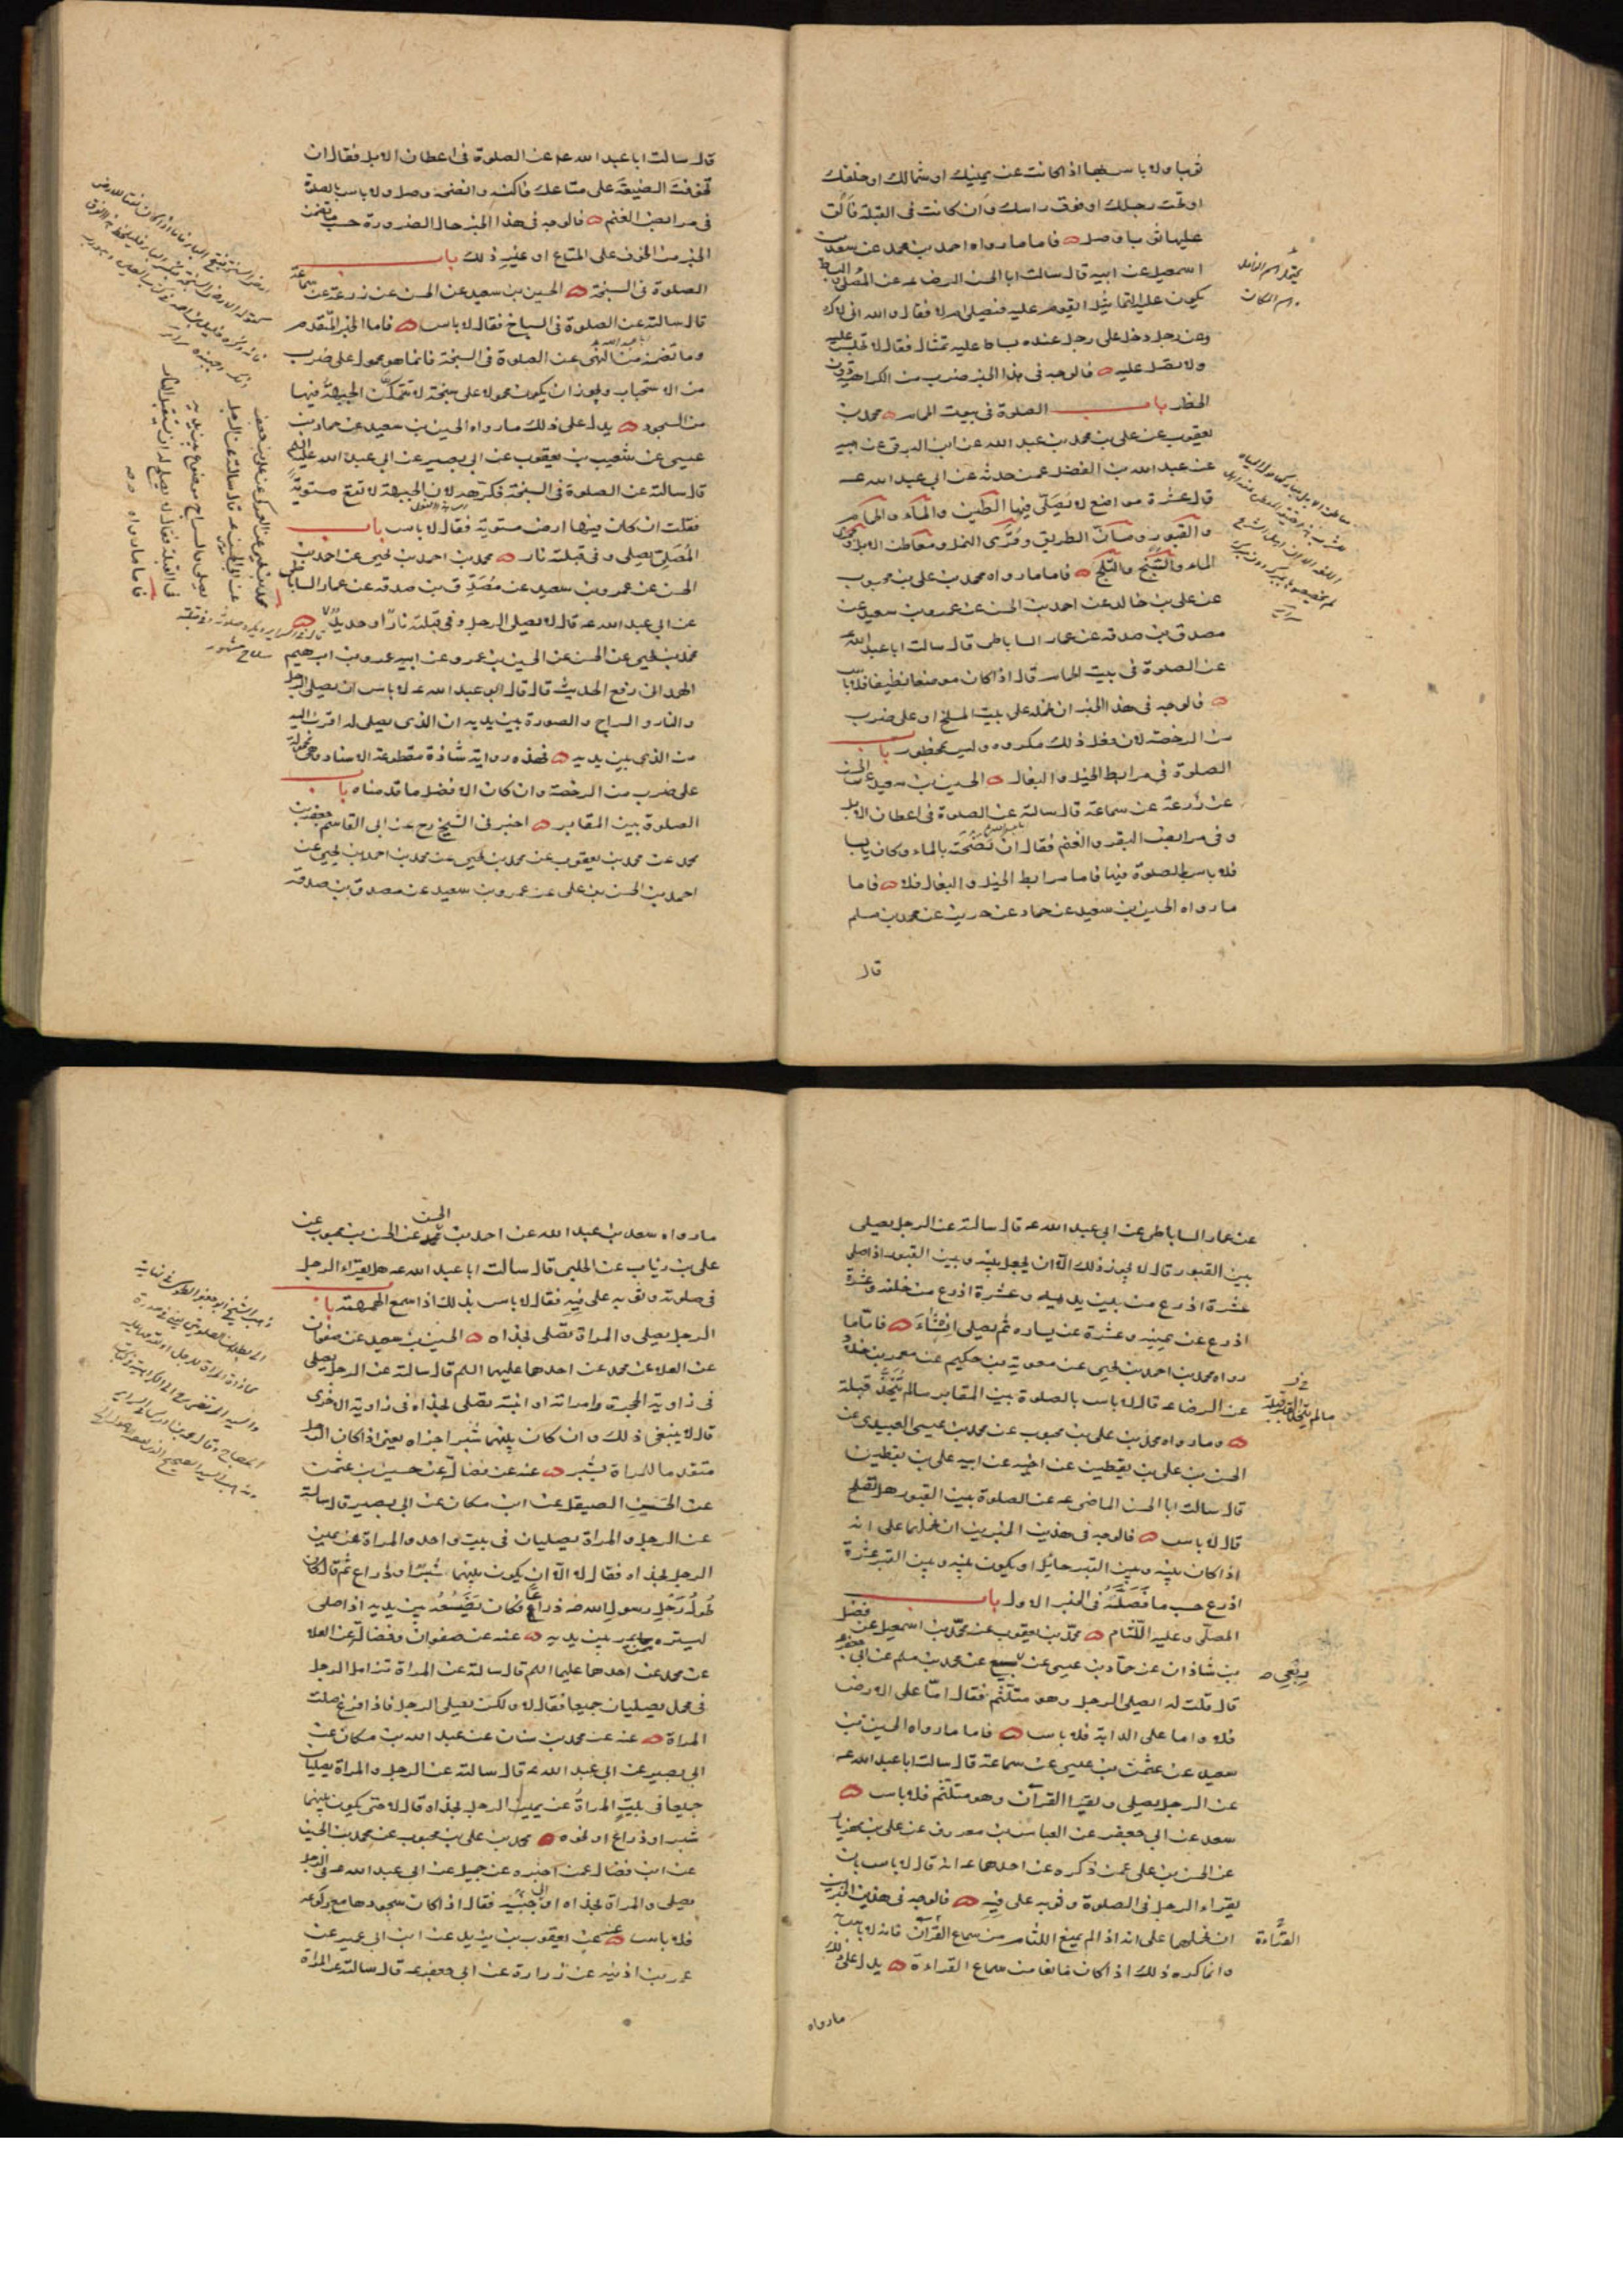 ثوبا ولا باس بها اذا كانت عن يمينك او شمالك او خلفك
او تحت رجلك او فوق راسك وان كانت في القبلة فالق
عليها ثوبا وصل فاما ما رواه احمد بن محمد عن سعد بن
اسمعيل عن ابيه قال سالت ابا الحسن الرضا عه عن المصلى والبساط
يكون عليه التماثيل ايقوم عليه فيصلي ام لا فقال والله اني لاكره
وعن رجل دخل على رجل عنده بساط عليه تمثال فقال لا تجلس عليه
ولا تصل عليه فالوجه في هذا الخبر ضرب من الكراهية دون
الحظر باب الصلوة في بيوت الحمام محمد بن
يعقوب عن علي بن محمد بن عبد الله عن ابن البرقي عن ابيه
عن عبد الله بن الفضل عمن حدثه عن ابي عبد الله عه
قال عشرة مواضع لا يصلى فيها الطين والماء والحمام
والقبور ومسان الطريق وقرى النمل ومعاطن الابل ومجرى
الماء والسبخ والثلج فاما ما رواه محمد بن علي بن محبوب
عن علي بن خالد عن احمد بن الحسن عن عمرو بن سعيد عن
مصدق بن صدقه عن عمار الساباطي قال سالت ابا عبد الله عه
عن الصلوة في بيت الحمام قال اذا كان موضعا نظيفا فلا باس
فالوجه في هذا الخبر ان نحمله على بيت المسلخ او على ضرب
من الرخصة لان فعل ذلك مكروه وليس بمحظور باب
الصلوة في مرابط الخيل والبغال الحسين بن سعيد عن الحسن
عن زرعة عن سماعة قال سالته عن الصلوة في اعطان الابل
وفي مرابض البقر والغنم فقال ان نضحته بالماء وكان يابسا
فلا باس بالصلوة فيها فاما مرابط الخيل والبغال فلا فاما
ما رواه الحسين بن سعيد عن حماد عن حريز عن محمد بن مسلم
قال
قال سالت ابا عبد الله عه عن الصلوة في اعطان الابل فقال ان
تخوفت الضيعة على متاعك فاكنسه وانضحه وصل ولا باس بالصلوة
في مرابض الغنم فالوجه في هذا الخبر حال الضرورة حسب ما تضمن
الخبر من الخوف على المتاع او غير ذلك باب
الصلوة في السبخة الحسين بن سعيد عن الحسن عن زرعة عن سماعة
قال سالته عن الصلوة في السباخ فقال لا باس فاما الخبر المتقدم
وما تضمن من النهي عن الصلوة في السبخة فانما هو محمول على ضرب
من الاستحباب ويجوز ان يكون محمولا على سبخة لا تتمكن الجبهة فيها
من السجود يدل على ذلك ما رواه الحسين بن سعيد عن حماد بن
عيسى عن شعيب بن يعقوب عن ابي بصير عن ابي عبد الله عليه السلام
قال سالته عن الصلوة في السبخة فكرهه لان الجبهة لا تقع مستوية
فقلت ان كان فيها ارض مستوية فقال لا باس باب
المصلي يصلي وفي قبلته نار محمد بن احمد بن يحيى عن احمد بن
الحسن عن عمرو بن سعيد عن مصدق بن صدقه عن عمار الساباطي
عن ابي عبد الله عه قال لا يصلي الرجل وفي قبلته نار او حديد
محمد بن يحيى عن الحسن عن الحسين بن عمرو عن ابيه عمرو بن ابرهيم
الهمداني رفع الحديث قال قال ابو عبد الله عه لا باس ان يصلي الرجل
والنار والسراج والصورة بين يديه ان الذي يصلي له اقرب اليه
من الذي بين يديه فهذه رواية شاذة مقطوعة الاسناد وهي محمولة
على ضرب من الرخصة وان كان الافضل ما قدمناه باب
الصلوة بين المقابر اخبرني الشيخ رح عن ابي القاسم جعفر بن
محمد عن محمد بن يعقوب عن محمد بن يحيى عن محمد بن احمد بن يحيى عن
احمد بن الحسن بن علي عن عمرو بن سعيد عن مصدق بن صدقه
عن عمار الساباطي عن ابي عبد الله عه قال سالته عن الرجل يصلي
بين القبور قال لا يجوز ذلك الا ان يجعل بينه وبين القبور اذا صلى
عشرة اذرع من بين يديه وعشرة اذرع من خلفه وعشرة
اذرع عن يمينه وعشرة عن يساره ثم يصلي ان شاء فاما ما
رواه محمد بن احمد بن يحيى عن معوية بن حكيم عن معمر بن خلاد
عن الرضا عه قال لا باس بالصلوة بين المقابر ما لم يتخذ قبلة
وما رواه محمد بن علي بن محبوب عن محمد بن عيسى العبيدي عن
الحسن بن علي بن يقطين عن اخيه عن ابيه علي بن يقطين
قال سالت ابا الحسن الماضي عه عن الصلوة بين القبور هل تصلح
قال لا باس فالوجه في هذين الخبرين ان نحملهما على انه
اذا كان بينه وبين القبر حائل او يكون بينه وبين القبر عشرة
اذرع حسب ما فصله في الخبر الاول باب
المصلي وعليه اللثام محمد بن يعقوب عن محمد بن اسمعيل عن فضل
بن شاذان عن حماد بن عيسى عن ربعي عن محمد بن مسلم عن ابي جعفر
قال قلت له ايصلي الرجل وهو متلثم فقال اما على الارض
فلا واما على الدابة فلا باس فاما ما رواه الحسين بن
سعيد عن عثمن بن عيسى عن سماعة قال سالت ابا عبد الله عه
عن الرجل يصلي ويقرا القرآن وهو متلثم فلا باس
سعد عن ابي جعفر عن العباس بن معروف عن علي بن مهزيار
عن الحسن بن علي عمن ذكره عن احدهما عه انه قال لا باس بان
يقراء الرجل في الصلوة وثوبه على فيه فالوجه في هذين الخبرين
ان نحملهما على انه اذا لم يمنع اللثام من سماع القرآن فانه لا باس به
القراءة
وانما كره ذلك اذا كان مانعا من سماع القراءة يدل على ذلك
ما رواه
ما رواه سعد بن عبد الله عن احمد بن محمد عن الحسن بن محبوب عن
علي بن رئاب عن الحلبي قال سالت ابا عبد الله عه هل يقراء الرجل
في صلوته وثوبه على فيه فقال لا باس بذلك اذا سمع الهمهمة باب
الرجل يصلي والمراة تصلي بحذاه الحسين بن سعيد عن صفوان
عن العلا عن محمد عن احدهما عليهما السلم قال سالته عن الرجل يصلي
في زاوية الحجرة وامراته او ابنته تصلي بحذاه في زاوية الاخرى
قال لا ينبغي ذلك وان كان بينهما شبر اجزاه يعني اذا كان الرجل
متقدما للمراة بشبر عنه عن فضالة عن حسين بن عثمن
عن الحسن الصيقل عن ابن مسكان عن ابي بصير قال سالته
عن الرجل والمراة يصليان في بيت واحد والمراة عن يمين
الرجل بحذاه فقال لا الا ان يكون بينهما شبر او ذراع ثم قال كان
طول رحل رسول الله صه ذراعا فكان يضعه بين يديه اذا صلى
ليستره ممن يمر بين يديه عنه عن صفوان وفضالة عن العلا
عن محمد عن احدهما عليهما السلم قال سالته عن المراة تزامل الرجل
في محمل يصليان جميعا فقال لا ولكن يصلي الرجل فاذا فرغ صلت
المراة عنه عن محمد بن سنان عن عبد الله بن مسكان عن
ابي بصير عن ابي عبد الله عه قال سالته عن الرجل والمراة يصليان
جميعا في بيت المراة عن يمين الرجل بحذاه قال لا حتى يكون بينهما
شبر او ذراع او نحوه محمد بن علي بن محبوب عن محمد بن الحسين
عن ابن فضال عمن اخبره عن جميل عن ابي عبد الله عه في الرجل
يصلي والمراة بحذاه او الى جنبيه فقال اذا كان سجودها مع ركوعه
فلا باس عنه عن يعقوب بن يزيد عن ابن ابي عمير عن
عمر بن اذينه عن زرارة عن ابي جعفر عه قال سالته عن المراة